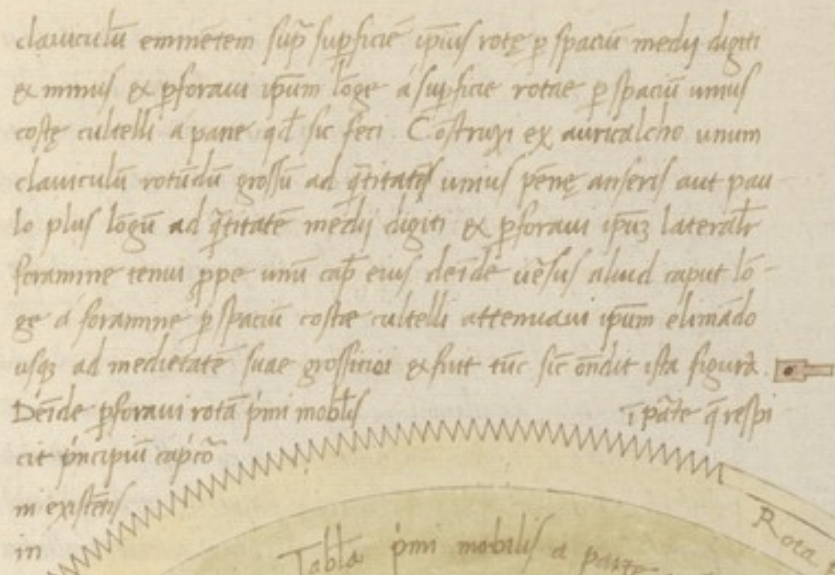 clauiculū eminētem sup̄ sup̄ficiē ip̄ius rotę ꝑ spaciū medij digiti
& minus & ꝑforaui ip̄um lōge a sup̄ficie rotae ꝑ spaciū unius
costę cultelli a parte qd̄ sic feci . Cōstruxi ex auricalcho unum
clauiculū rotūdū grossū ad q̄titatē unius pēnę anseris aut pau
lo plus lōgū ad q̄titatē medij digiti & ꝑforaui ip̄uꝫ lateralr̄
foramine tenui ꝓpe unū cap̄ eius deīde uēsus aliud caput lō-
ge a foramine ꝑ spaciū costae cultelli attenuaui ip̄um elimādo
usqꝫ ad medietatē suae grossitiei & fiut tūc sic̄ on̄dit ista figura .
Deīde ꝑforaui rotā p̄mi mobil̄is ī pāte q̄ respi
cit p̄ncipiū cap̄cō
ni existētis
in
Tabl̄a p̄mi mobilis a parte
Rota